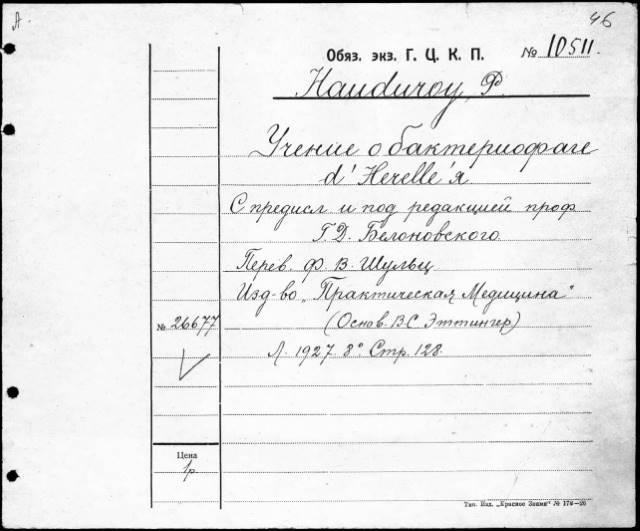 А
46
Обяз. экз. Г. Ц. К. П. № 10511.
Hauduroy, Ф.
Учение о бактериофаге
d'Herelle'я
С предисл и под редакцией проф
Г.Д. Белоновского.
Перев. Ф. В. Шульц
Изд-во „Практическая Медицина"
№ 26677
(Основ. В.С. Эттингер)
Л. 1927. 8° Стр. 128.
Цена
1р.
Тип. Изд. „Красное Знамя" № 178—26